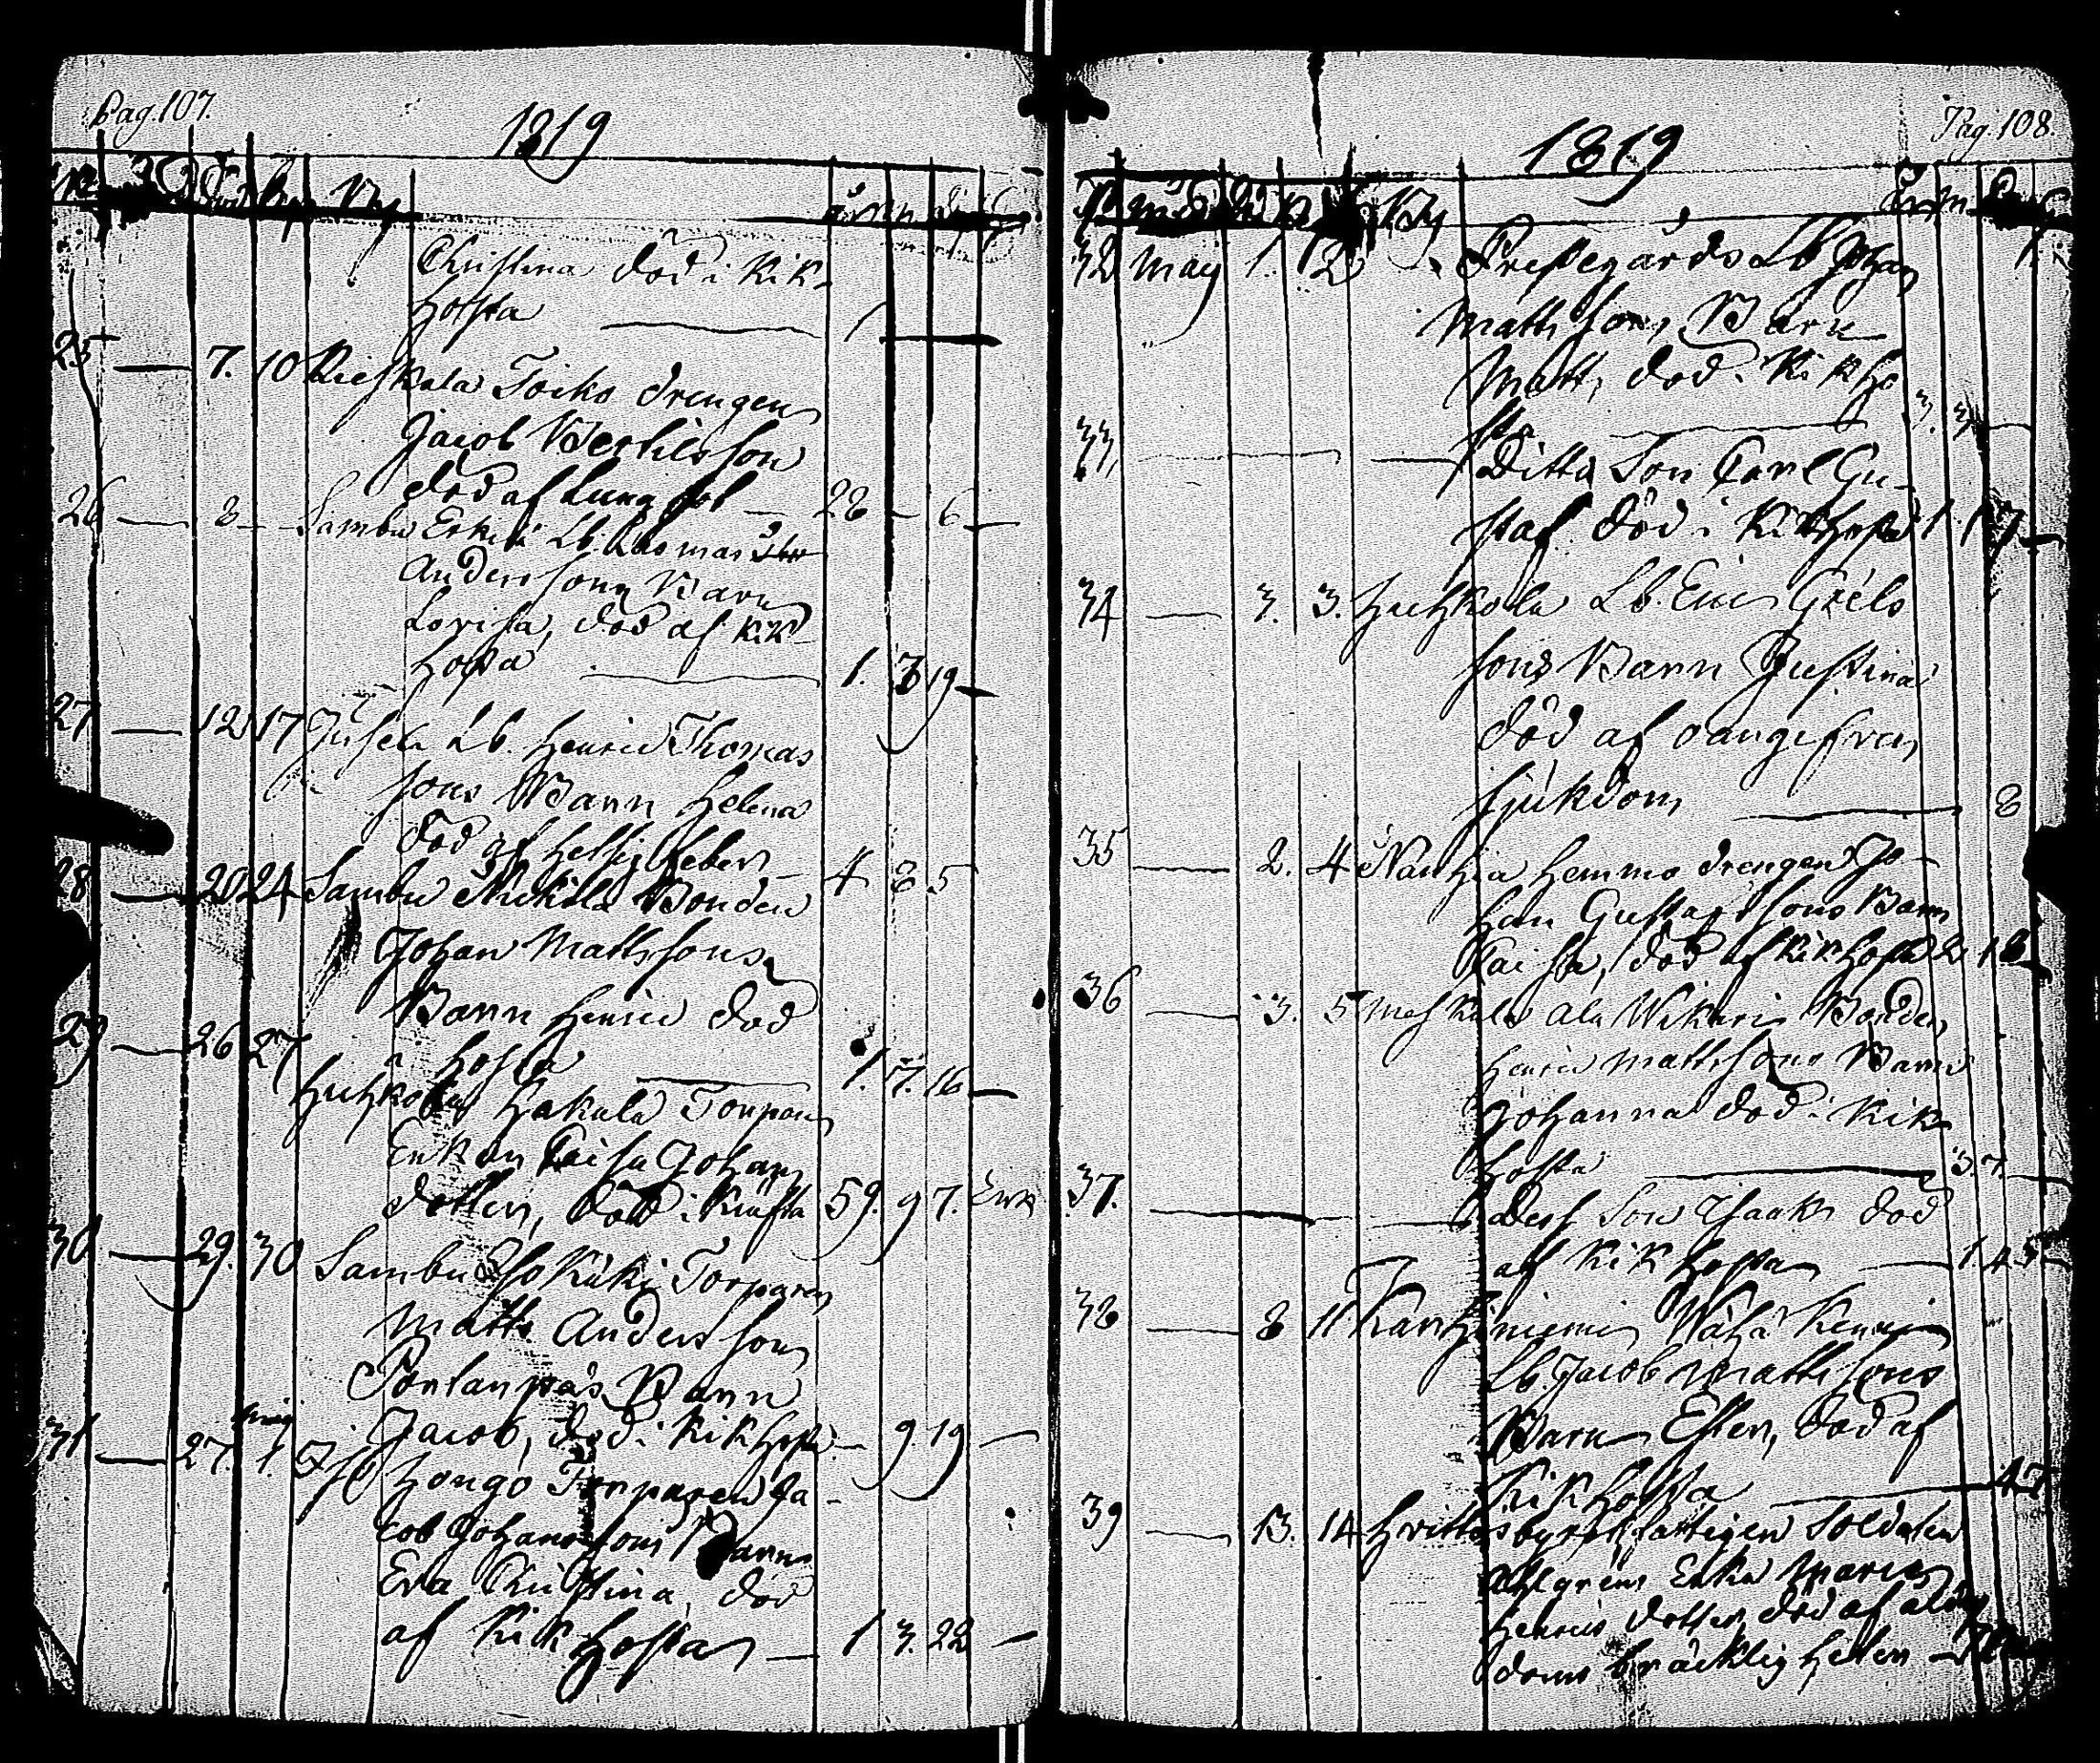 Pag. 107.
1819
By
Christina död i Kik-
hosta 1
25 — 7. 10 Kieskala Toiko drengen
Jacob Bertilsson
död af Lungsot — 28 — 6 —
26 — 8 — Sambu Erkilä Lb.
Anderssons Barn
Lovisa, död af Kik-
hosta 1. 3 19 —
27 — 12 17 Lb. Henric Thomas
sons Barn Helena
död af Hetsig feber — 4 8 5
28 — 20 24 Sambu Mickola Bonden
Johan Mattssons
Barn Henric död
i hosta 1. 7. 16 —
29 — 26 27
Huhkola Hakula Torpare
Enkan Caisa Johans
dotter, död i Kräfta 59. 9 7. Enk
30 — 29. 30 Sambu Iso Kuki Torparen
Matts Andersson
Pontanpäs Barn
Jacob, död i Kikhosta — 9. 19 —
31 — 27. maj 1. Iso Hongo Torparen Ja-
cob Johanssons Barn
Eva Christina, död
af Kik hosta — 1 3. 22 —
Pag. 108.
1819
By
32 May 1. Prestegårds Lb Johan
Mattssons Barn
Matts, död i Kikho
sta 3. 3 —
33 — Ditto Son Carl Gu-
staf död i Kikhosta 1. 1 7 —
34 — 3. 3. Huhkola Lb. Eric Grels
sons Barn Justina
död af oangifven
sjukdom 8
35 — 2. 4 Nanhia Hemmo drengen Jo-
han Gustafssons Barn
Caisa, död af Kikhosta 2 1 8
36 — 3. 5 Meskala Ala Wikari Bonden
Henric Mattssons Barn
Johanna död i Kik
hosta 3 7
37. — Dess Son Isaak död
af Kik hosta — 1. 4 5 —
38 — 8 11 Karhiniemi Wähä
Lb. Jacob Mattssons
Barn Ester, död af
Kik hosta 4 7
39 — 13. 14 Hvittisby fattigen Soldaten
Ahlgrens Enka Maria
Henrics dotter död af ålder
doms bräcklighet